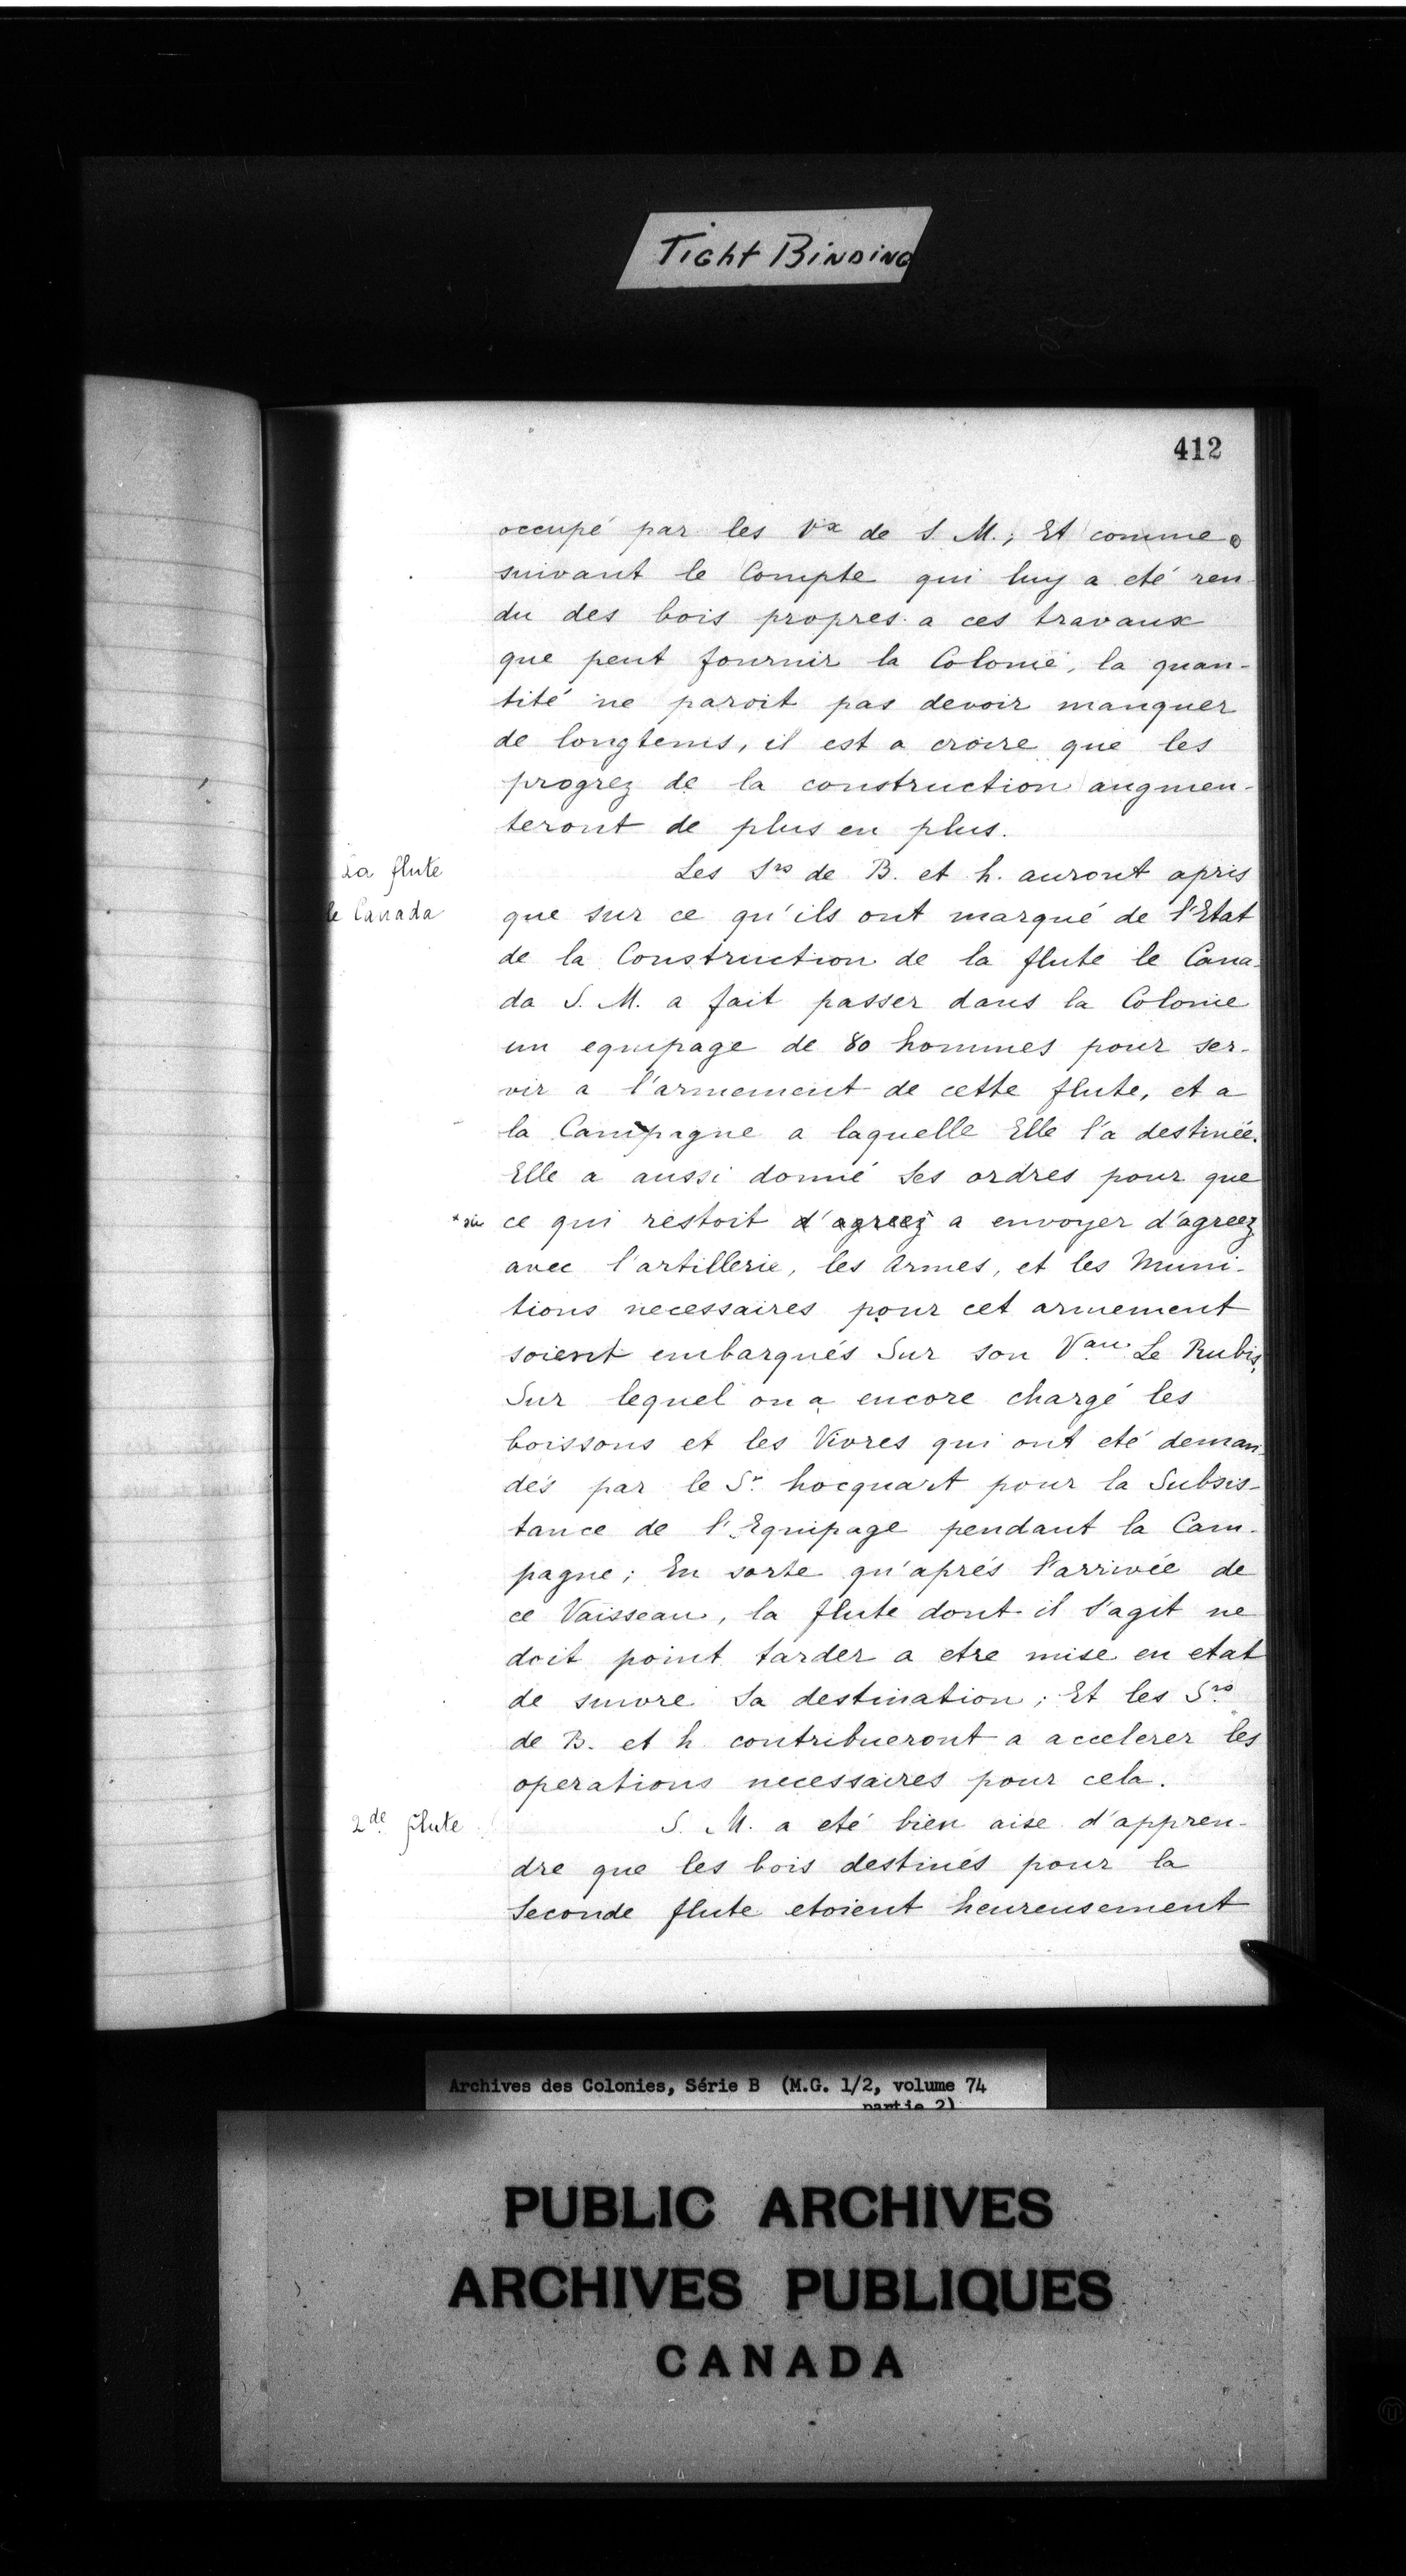 Tight Binding
412
occupé par les Vx de S. M.; Et comme
suivant le Compte qui luy a eté ren-
du des bois propres a ces travaux
que peut fournir la Colonie, la quan-
tité ne paroit pas devoir manquer
de longtems, il est a croire que les
progrez de la construction augmen-
teront de plus en plus.
La flute
le Canada
Les Srs de B. et h. auront apris
que sur ce qu'ils ont marqué de l'Etat
de la Construction de la flute le Cana-
da S. M. a fait passer dans la Colonie
un equipage de 80 hommes pour ser-
vir a l'armement de cette flute, et a
la Campagne a laquelle Elle l'a destinée.
Elle a aussi donné Ses ordres pour que
ce qui restoit d'agreez a envoyer d'agreez
avec l'artillerie, les Armes, et les Muni-
tions necessaires pour cet armement
soient embarqués Sur son Vau Le Rubis,
Sur lequel on a encore chargé les
boissons et les Vivres qui ont eté deman-
dés par le Sr. hocquart pour la Subsis-
tance de l'Equipage pendant la Cam-
pagne; En sorte qu'aprés l'arrivée de
ce Vaisseau, la flute dont il s'agit ne
doit point tarder a etre mise en etat
de suivre Sa destination; Et les Srs
de B. et h. contribueront a accelerer les
operations necessaires pour cela.
2de flute
S. M. a eté bien aise d'appren-
dre que les bois destinés pour la
Seconde flute etoient heureusement
Archives des Colonies, Série B (M.G. 1/2, volume 74
partie 2)
PUBLIC ARCHIVES
ARCHIVES PUBLIQUES
CANADA